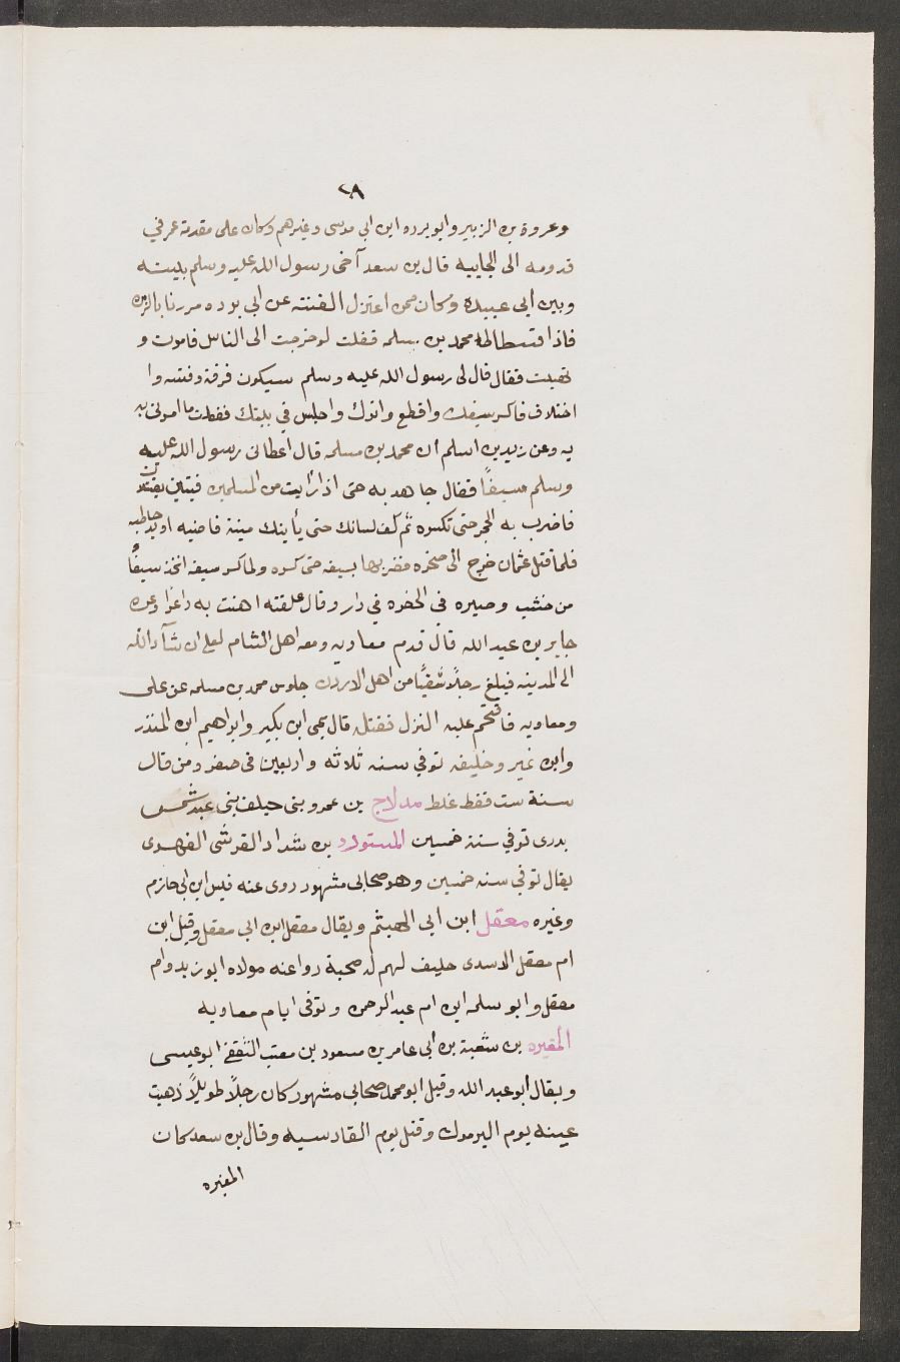 ٢٨
وعروة بن الزبير وابو برده ابن ابي موسى وغيرهم وكان على مقدمة عمر في
قدومه الى الجابيه قال بن سعد آخى رسول الله عليه وسلم بينه
وبين ابى عبيدة وكان ممن اعتزل الفتنه عن ابي بوده مررنا بالربذه
فاذا فسطاط محمد بن مسلمه فقلت لو خرجت الى الناس فامرت و
نهيت فقال قال لى رسول الله عليه وسلم سيكون فرقة وفتنه وا
اختلاف فاكسر سيفك واقطع وترك واجلس في بيتك ففعلت ما امرنى به
به وعن زيد بن اسلم ان محمد بن مسلمه قال اعطانى رسول الله عليه
وسلم سيفًا فقال جاهد به حتى اذا رايت من المسلمين فيتين يقتتلان
فاضرب به الحجر حتى تكسره ثم كف لسانك حتى يأتيك منية قاضيه او يد خاطيه
فلما قتل عثمان خرج الى صخره فضربها بسيفه حتى كسره ولما كسر سيفه اتخذ سيفًا
من خشب وصيره في الجفره في دار وقال علقته اهنت به داعرا وعن
جابر بن عبد الله قال قدم معاويه ومعه اهل الشام لعل ان شآء الله
الى المدينه فبلغ رجلاً شقيًا من اهل الاردن جلوس محمد بن مسلمه عن على
ومعاويه فاقتحم عليه المنزل فقتله قال يحى ابن بكير وابراهيم ابن المنذر
وابن نمير وخليفه توفي سنه ثلاثه واربعين فى صفر ومن قال
سنة ست فقط غلط مدلاج بن عمرو بنى حيلف بنى عبد شمس
بدرى توفي سنة خمسين المستورد بن شداد القرشى الفهدى
يقال توفي سنه خمسين وهو صحابى مشهور روى عنه قيس ابن ابى حازم
وغيره معقل ابن ابي الهيثم ويقال معقل ابن ابى معقل وقيل ابن
ام معقل الاسدى حليف لهم له صحبة روا عنه مولاه ابو زيد وام
معقل وابو سلمه ابن ام عبد الرحمن وتوفى ايام معاويه
المغيره بن شعبة بن أبى عامر بن مسعود بن معتب الثقفى ابو عيسى
ويقال ابو عبد الله وقيل ابو محمد صحابى مشهور كان رجلاً طويلاً ذهبت
عينه يوم اليرموك وقتل يوم القادسيه وقال بن سعد كان
المغيره